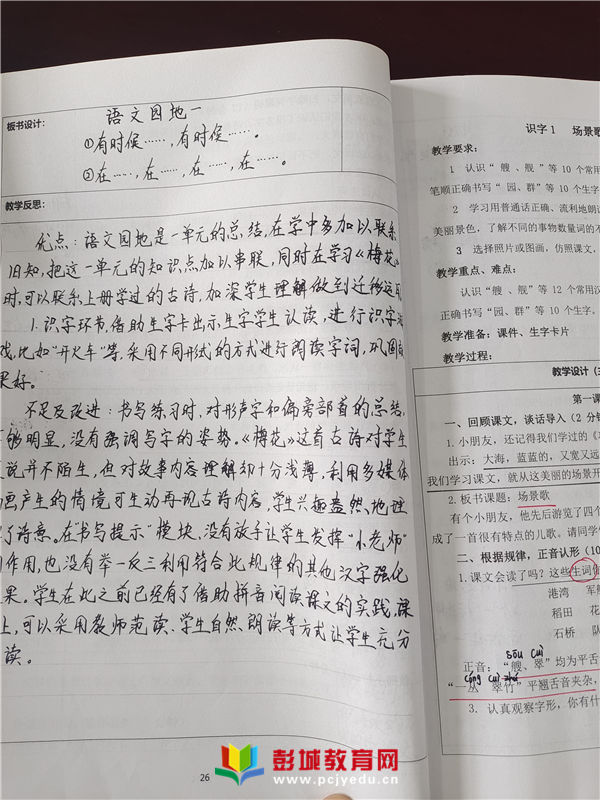 板书设计：
语文园地一
①有时候……，有时候……。
②在……，在……，在……，在……。
教学反思：
优点：语文园地是一单元的总结，在学中多加以联系
旧知，把这一单元的知识点加以串联，同时在学习《梅花》
时，可以联系上册学过的古诗，加深学生理解做到迁移运用
1.识字环节，借助生字卡出示生字学生认读，进行识字
戏，比如"开火车"等，采用不同形式的方式进行阅读字词，巩固
果好。
不足及改进：书写练习时，对形声字和偏旁部首的总结，
够明显，没有强调写字的姿势。《梅花》这首古诗对学生
说并不陌生，但对故事内容理解却十分浅薄，利用多媒体
画产生的情境可生动再现古诗内容，学生兴趣盎然地理
了诗意。在"书写提示"模块，没有放手让学生发挥"小老师"
作用，也没有举一反三利用符合此规律的其他汉字强化
果。学生在此之前已经有了借助拼音阅读课文的实践，课
上，可以采用教师范读、学生自然朗读等方式让学生充分
读。
26
识字 1 场景歌
教学要求：
1 认识" 艘、舰" 等 10 个常用
笔顺正确书写" 园、群" 等 10 个生字
2 学习用普通话正确、流利地朗
美丽景色，了解不同的事物数量词的不
3 选择照片或图画，仿照课文，
教学重点、难点：
认识" 艘 、舰" 等 12 个常用汉
正确书写" 园、群" 等 10 个生字。
教学准备：课件、生字卡片
教学过程：
教学设计（主
第一课
一、回顾课文，谈话导入（2 分钟
1. 小朋友，还记得我们学过的《
出示：大海，蓝蓝的，又宽又远
我们学习课文，就从这美丽的场景开
2. 板书课题：场景歌
有个小朋友，他先后游览了四个
成了一首很有特点的儿歌。请同学
二、根据规律，正音认形（10
1. 课文会读了吗？这些生词
港湾 军舰
稻田 花
石桥 队
sōu cuì
正音："艘、翠"均为平舌
cóng cuì zhú
"一丛 翠竹"平翘舌音夹杂，
3. 认真观察字形，你有什
彭城教育网
www.pcjyedu.cn